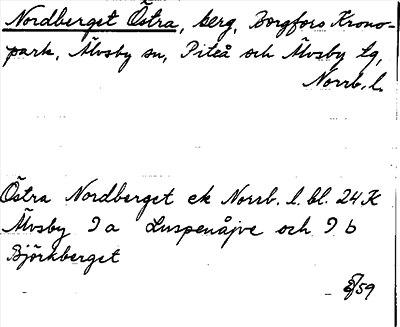 Nordberget Östra, berg, Borgfors Krono-
park, Älvsby sn, Piteå och Älvsby tg,
Norrb. l.
Östra Nordberget ek Norrb. l. bl. 24 K
Älvsby 9 a Luspenåjve och 9 b
Björkberget
/59